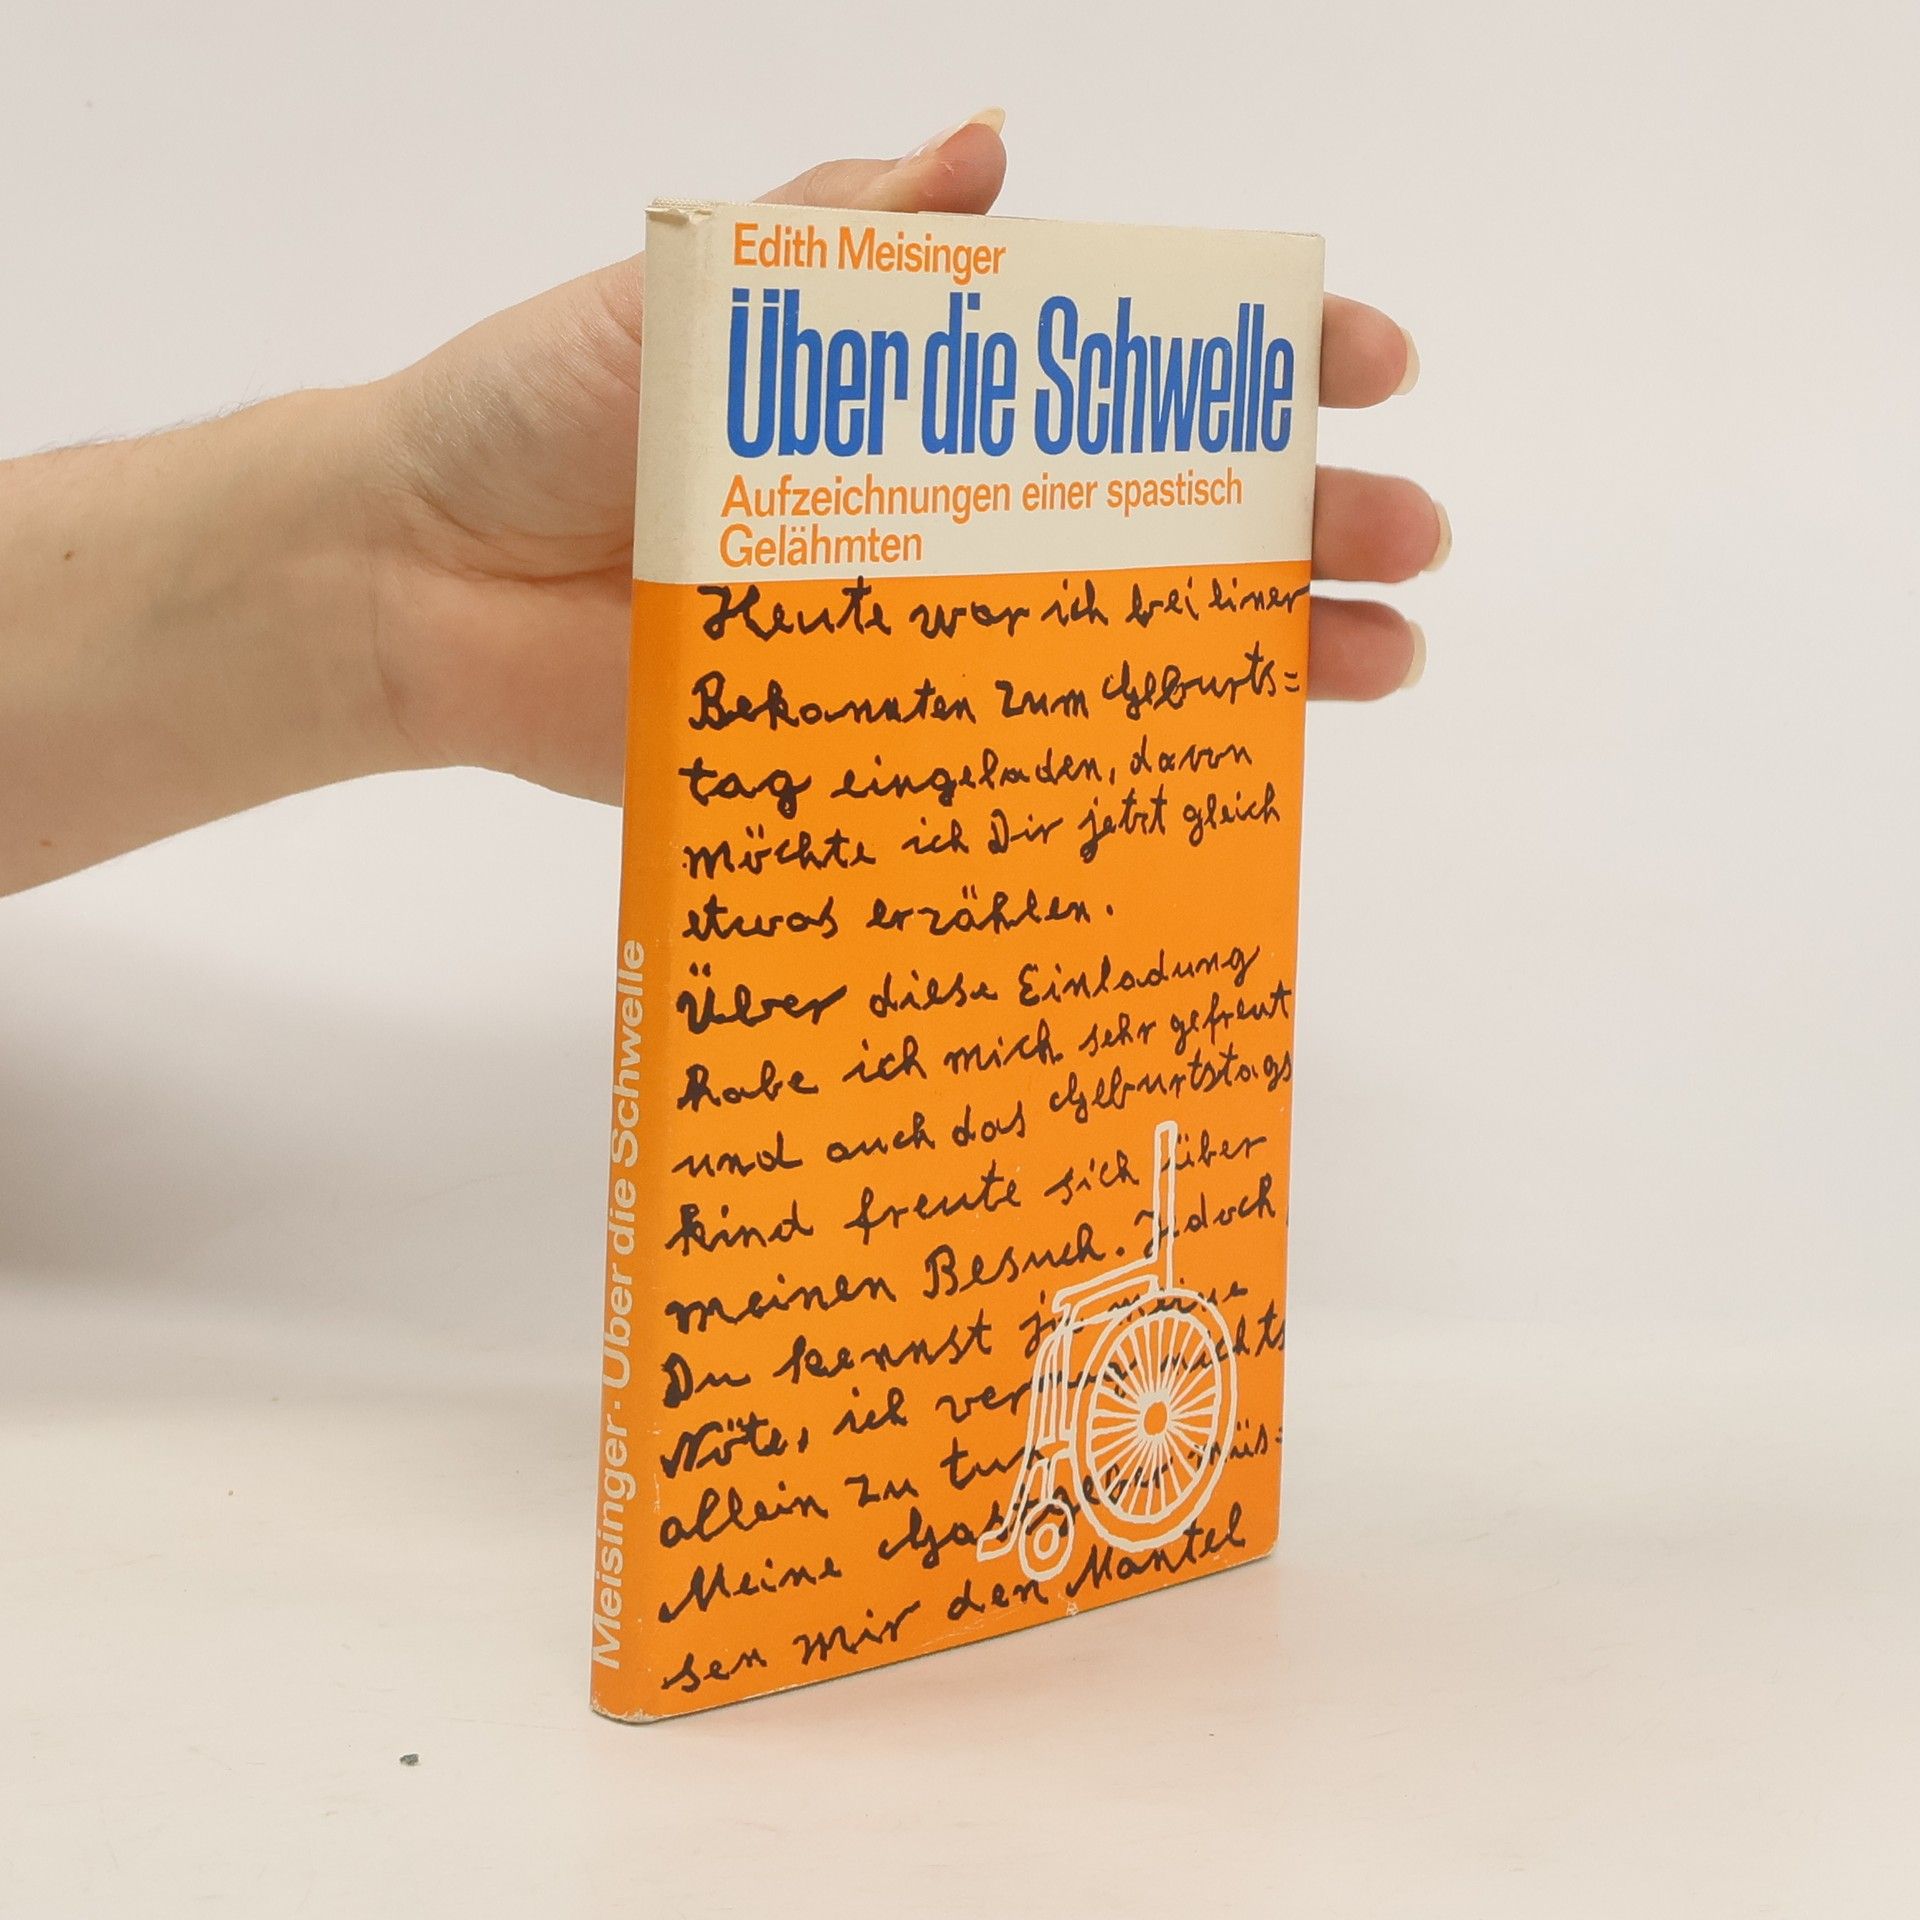 Edith Meisinger
Über die Schwelle
Aufzeichnungen einer spastisch
Gelähmten
Heute war ich bei einer
Bekannten zum Geburts=
tag eingeladen, davon
möchte ich Dir jetzt gleich
etwas erzählen.
Über diese Einladung
habe ich mich sehr gefreut
und auch das Geburtstags
kind freute sich über
meinen Besuch. Jedoch,
Du kennst ja meine
Nöte, ich vermag nichts
allein zu tun.
Meine Gastgeber müs=
sen mir den Mantel
Meisinger · Über die Schwelle